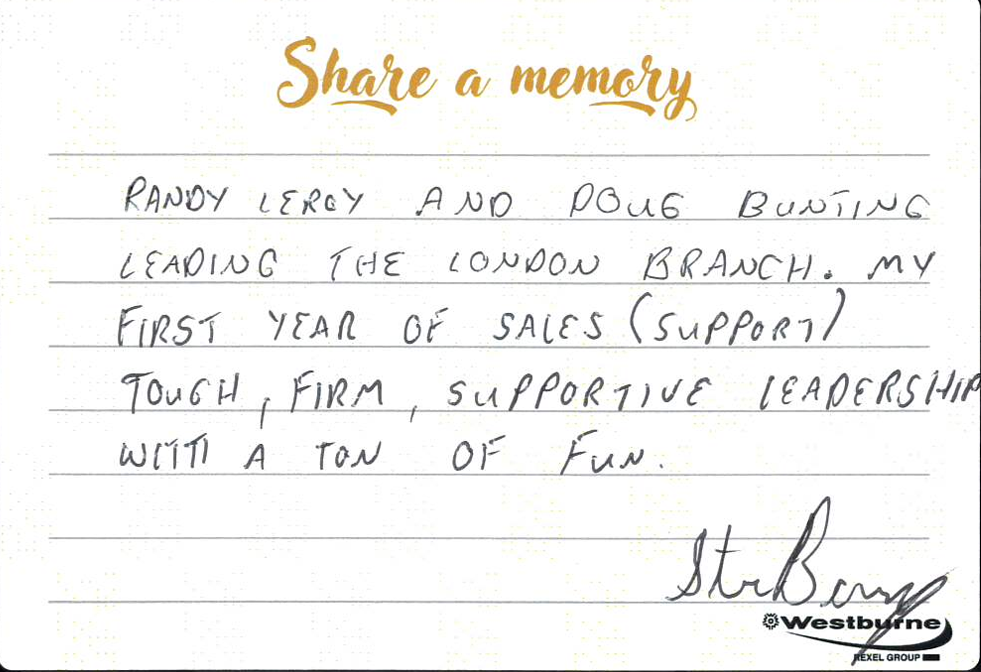 Share a memory
RANDY LEROY AND DOUG BUNTING
LEADING THE LONDON BRANCH. MY
FIRST YEAR OF SALES (SUPPORT)
TOUGH, FIRM, SUPPORTIVE LEADERSHIP
WITH A TON OF FUN.
Westburne
REXEL GROUP